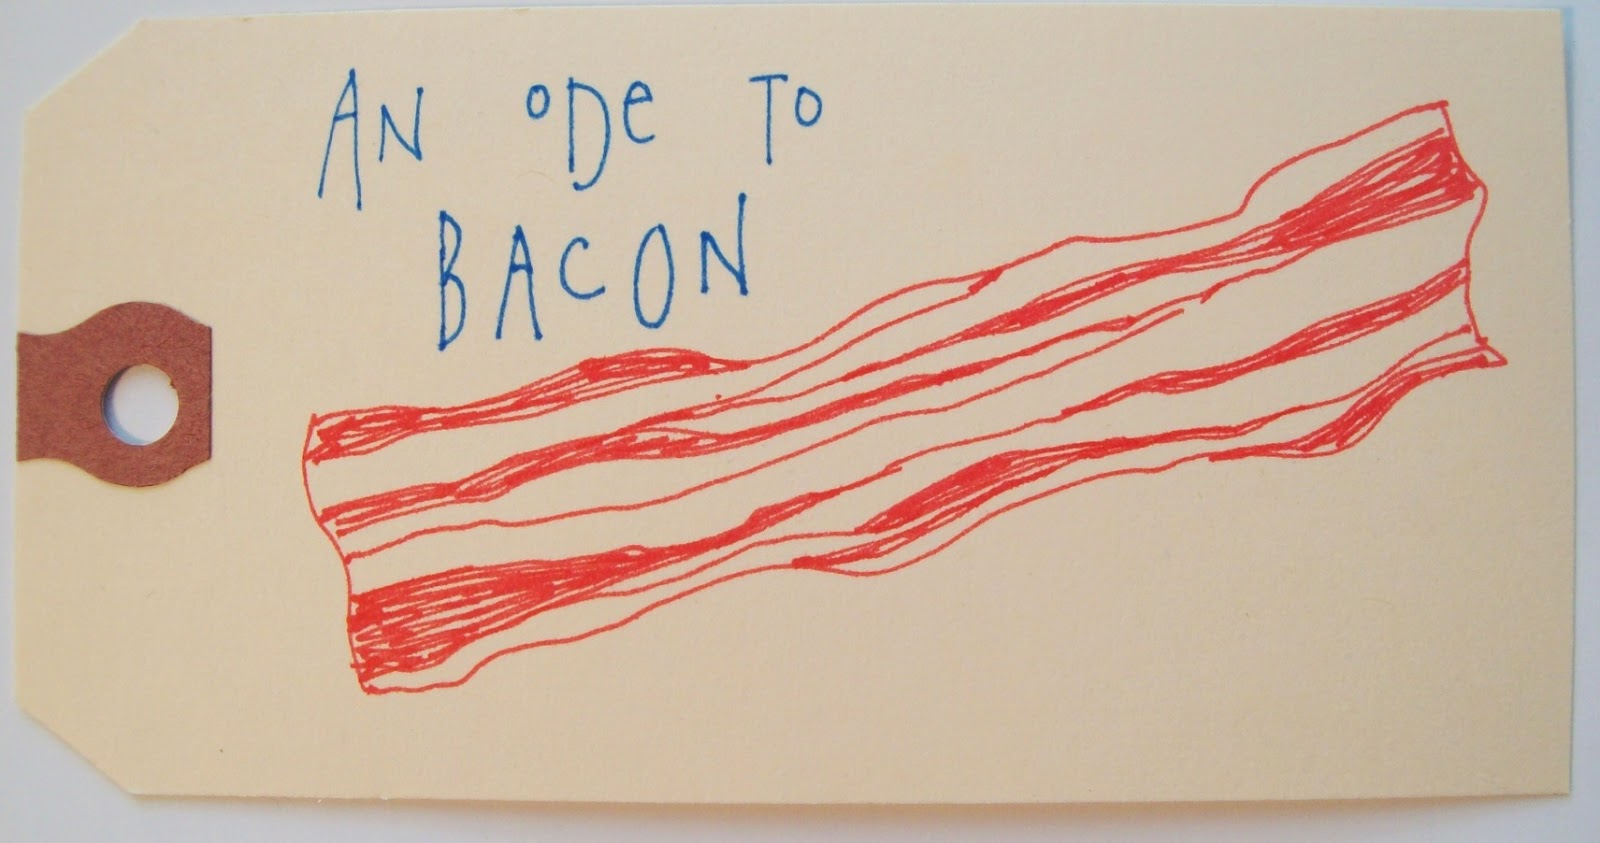 AN oDe To
BACON